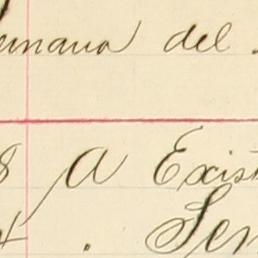 emana del
8 A Exist
Sen